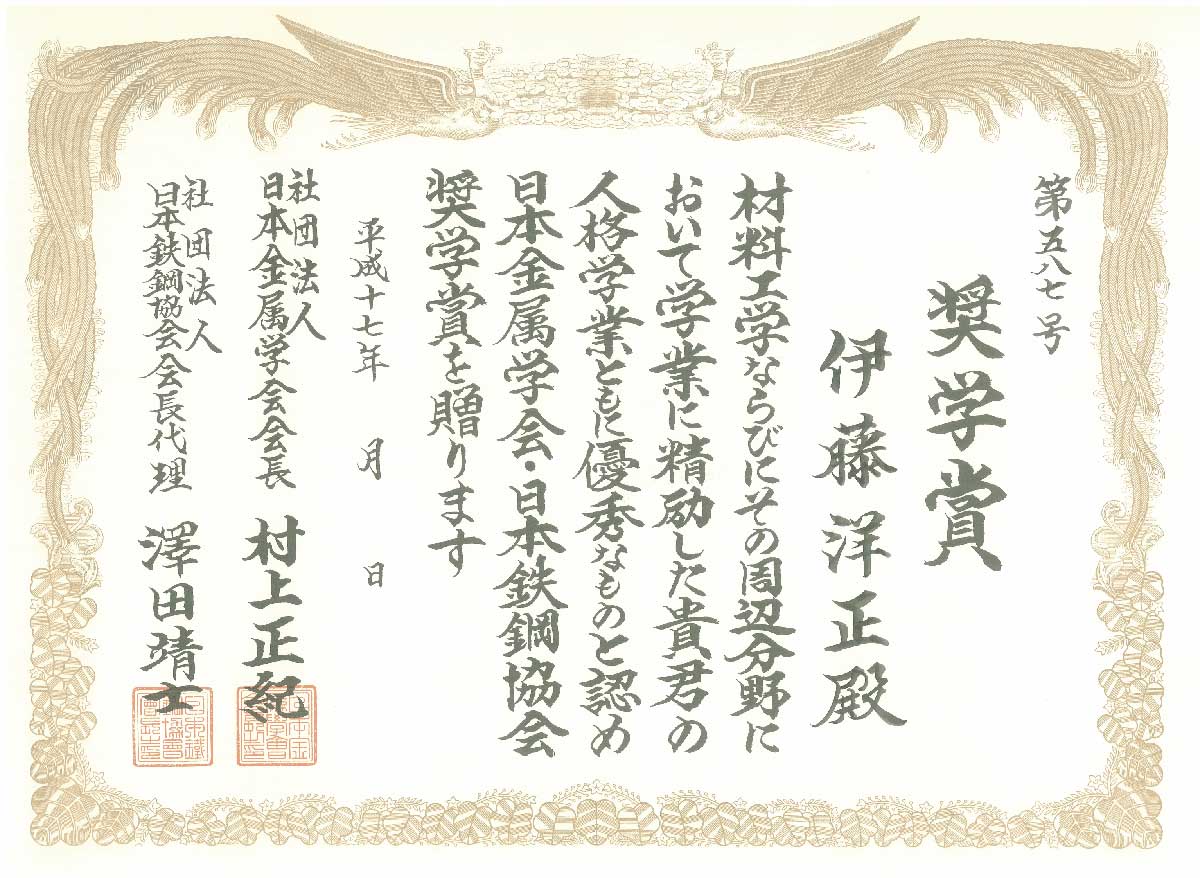 第五八七号
奨学賞
伊藤洋正殿
材料工学ならびにその周辺分野に
おいて学業に精励した貴君の
人格学業ともに優秀なものと認め
日本金属学会・日本鉄鋼協会
奨学賞を贈ります
平成十七年 月 日
社団法人
日本金属学会会長 村上正紀
社団法人
日本鉄鋼協会会長代理 澤田靖士